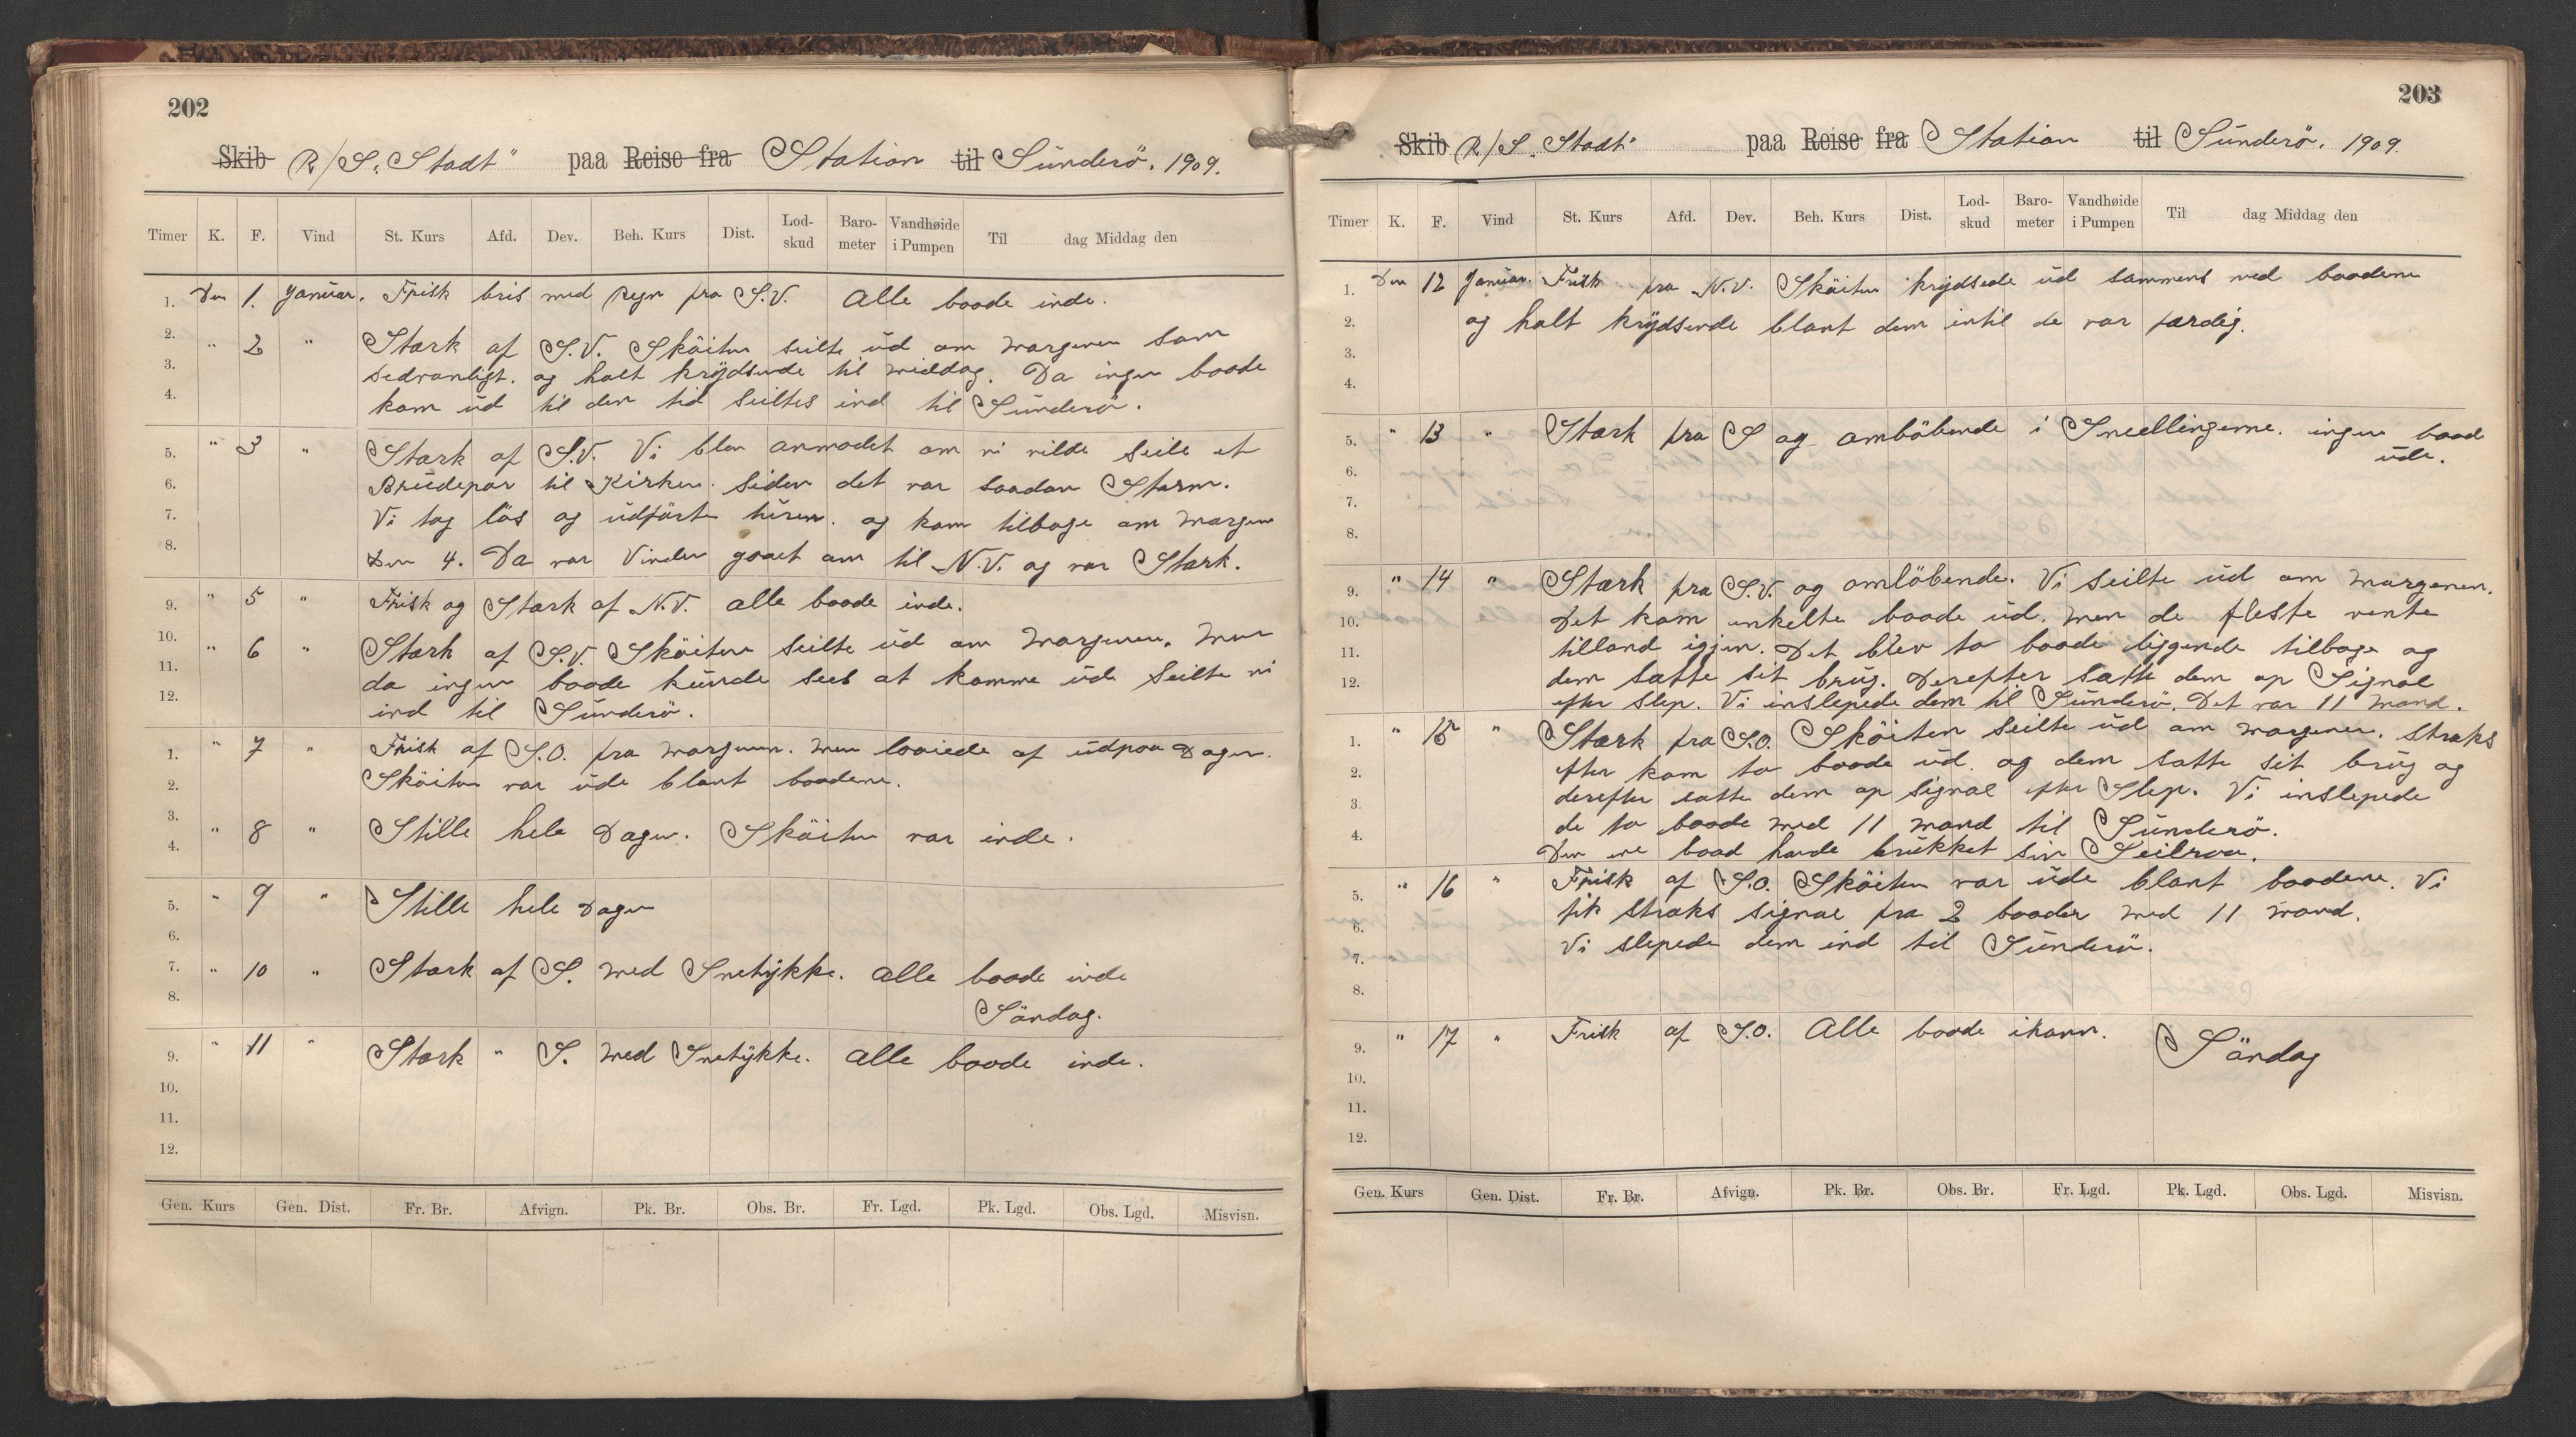 202
Skib R/S. "Stadt" paa Reise fra Station til Sünderö. 1909.
Timer K. F. Vind St. Kurs Afd. Dev. Beh. Kurs Dist. Lod-skud Baro-meter Vandhøide i Pumpen Til dag Middag den
1. Den 1. Januar. Frisk bris med Regn fra S.V. Alle baade inde.
2. " 2 " Stærk af S.V. Sköiten seilte üd om margenen som
3. sedvanligt. og halt krÿdsende til middag. Da ingen baade
4. kom üd til den tid seiltes ind til Sünderö.
5. " 3 " Stærk af S.V. Vi blev anmodet om vi vilde seile et
6. Brüdepar til Kirken. siden det var saadan Storm.
7. Vi tog lös og üdförte hüren. og kom tilbage om Margen
8. Den 4. Da var Vinden gaaet om til N.V. og var Stærk.
9. " 5 " Frisk og Stærk af N.V. alle baade inde.
10. " 6 " Stærk af S.V. Sköiten seilte üd om Margenen. Men
11. da ingen baade künde sees at komme üd seilte vi
12. ind til Sünderö.
1. " 7 " Frisk af S.O. fra margenen. men looiede af üdpaa Dagen.
2. Sköiten var üde blant baadene.
3.
4. " 8 " Stille hele Dagen. Sköiten var inde.
5. " 9 " Stille hele Dagen
6.
7. " 10 " Stærk af S. med Snetÿkke. alle baade inde
8. Söndag.
9. " 11 " Stærk " S. med Snetÿkke. alle baade inde.
10.
11.
12.
Gen. Kurs Gen. Dist. Fr. Br. Afvign. Pk. Br. Obs. Br. Fr. Lgd. Pk. Lgd. Obs. Lgd. Misvisn.
203
Skib R/S. "Stadt" paa Reise fra Station til Sünderö. 1909.
Timer K. F. Vind St. Kurs Afd. Dev. Beh. Kurs Dist. Lod-skud Baro-meter Vandhøide i Pumpen Til dag Middag den
1. Den 12 Januar. Frisk fra N.V. Sköiten krÿdsede üd sammens med baadene
2. og halt krÿdsende blant dem intil de var færdig.
3.
4.
5. " 13 " Stærk fra S og omlöbende i Sneellingerne. ingen baad
6. üde.
7.
8.
9. " 14 " Stærk fra S.V. og omlöbende. Vi seilte üd om margenen.
10. Det kom enkelte baade üd. men de fleste vente
11. tilland igjen. Det blev to baade liggende tilbage og
12. dem satte sit brüg. Derefter satte dem op Signal
efter Slep. Vi inslepede dem til Sünderö. Det var 11 mand.
1. " 15 " Stærk fra S.O. Sköiten seilte üd om margenen. straks
2. efter kom to baade üd. og dem satte sit brüg og
3. derefter satte dem op signal efter Slep. Vi inslepede
4. de to baade med 11 mand til Sünderö.
Den ene baad havde brükket sin Seilraa.
5. " 16 " Frisk af S.O. Sköiten var üde blant baadene. Vi
6. fik straks signal fra 2 baader med 11 mand.
7. Vi slepede dem ind til Sünderö.
8.
9. " 17 " Frisk af S.O. Alle baade ihavn. Söndag
10.
11.
12.
Gen. Kurs Gen. Dist. Fr. Br. Afvign. Pk. Br. Obs. Br. Fr. Lgd. Pk. Lgd. Obs. Lgd. Misvisn.